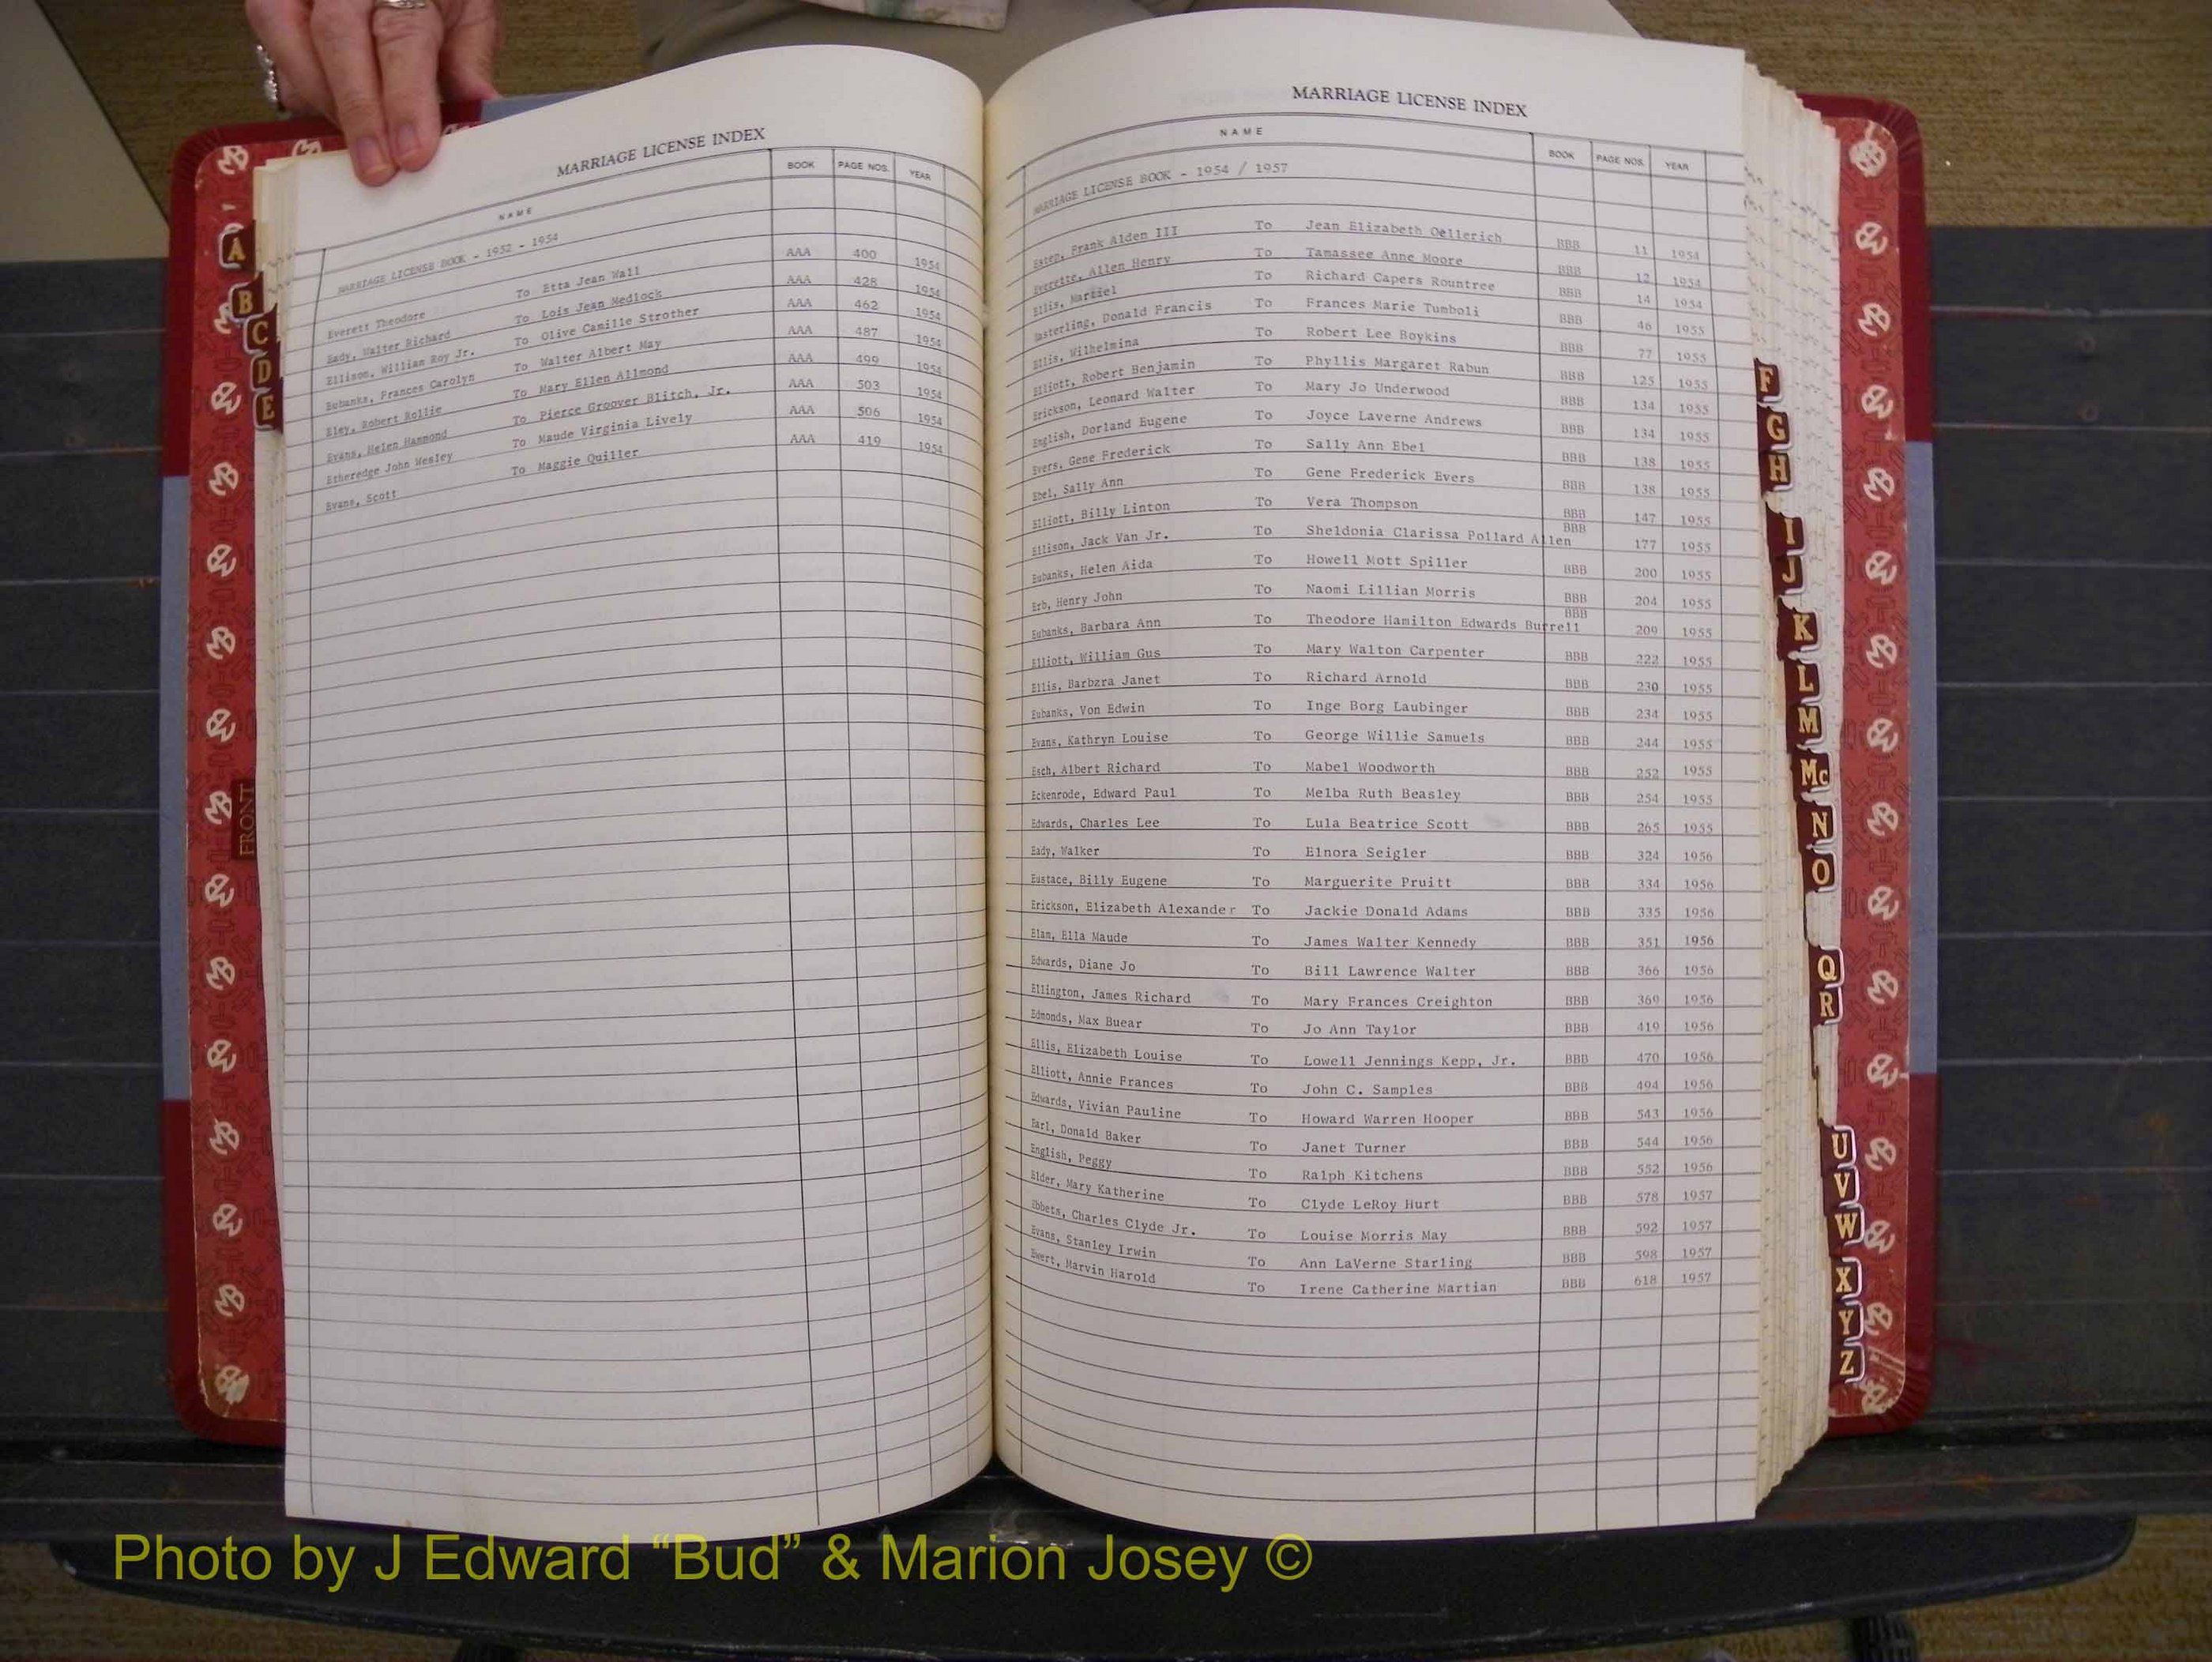 MARRIAGE LICENSE INDEX
NAME BOOK PAGE NOS. YEAR
MARRIAGE LICENSE BOOK - 1952 - 1954
Everett Theodore To Etta Jean Wall AAA 400 1954
Eady, Walter Richard To Lois Jean Medlock AAA 428 1954
Ellison, Willian Roy Jr. To Olive Camille Strother AAA 462 1954
Eubanks, Frances Carolyn To Walter Albert May AAA 487 1954
Eley, Robert Rollie To Mary Ellen Allmond AAA 499 1954
Evans, Helen Hammond To Pierce Groover Blitch, Jr. AAA 503 1954
Etheredge John Wesley To Maude Virginia Lively AAA 506 1954
Evans, Scott To Maggie Quiller AAA 419 1954
MARRIAGE LICENSE INDEX
NAME BOOK PAGE NOS. YEAR
MARRIAGE LICENSE BOOK - 1954 / 1957
Estep, Frank Alden III To Jean Elizabeth Oellerich BBB 11 1954
Everette, Allen Henry To Tamassee Anne Moore BBB 12 1954
Ellis, Martiel To Richard Capers Rountree BBB 14 1954
Easterling, Donald Francis To Frances Marie Tumboli BBB 46 1955
Ellis, Wilhelmina To Robert Lee Boykins BBB 77 1955
Elliott, Robert Benjamin To Phyllis Margaret Rabun BBB 125 1955
Erickson, Leonard Walter To Mary Jo Underwood BBB 134 1955
English, Dorland Eugene To Joyce Laverne Andrews BBB 134 1955
Evers, Gene Frederick To Sally Ann Ebel BBB 138 1955
Ebel, Sally Ann To Gene Frederick Evers BBB 138 1955
Elliott, Billy Linton To Vera Thompson BBB 147 1955
Ellison, Jack Van Jr. To Sheldonia Clarissa Pollard Allen BBB 177 1955
Eubanks, Helen Aida To Howell Mott Spiller BBB 200 1955
Erb, Henry John To Naomi Lillian Morris BBB 204 1955
Eubanks, Barbara Ann To Theodore Hamilton Edwards Burrell BBB 209 1955
Elliott, William Gus To Mary Walton Carpenter BBB 222 1955
Ellis, Barbzra Janet To Richard Arnold BBB 230 1955
Eubanks, Von Edwin To Inge Borg Laubinger BBB 234 1955
Evans, Kathryn Louise To George Willie Samuels BBB 244 1955
Esch, Albert Richard To Mabel Woodworth BBB 252 1955
Eckenrode, Edward Paul To Melba Ruth Beasley BBB 254 1955
Edwards, Charles Lee To Lula Beatrice Scott BBB 265 1955
Eady, Walker To Elnora Seigler BBB 324 1956
Eustace, Billy Eugene To Marguerite Pruitt BBB 334 1956
Erickson, Elizabeth Alexander To Jackie Donald Adams BBB 335 1956
Elan, Ella Maude To James Walter Kennedy BBB 351 1956
Edwards, Diane Jo To Bill Lawrence Walter BBB 366 1956
Ellington, James Richard To Mary Frances Creighton BBB 369 1956
Edmonds, Max Buear To Jo Ann Taylor BBB 419 1956
Ellis, Elizabeth Louise To Lowell Jennings Kepp, Jr. BBB 470 1956
Elliott, Annie Frances To John C. Samples BBB 494 1956
Edwards, Vivian Pauline To Howard Warren Hooper BBB 543 1956
Earl, Donald Baker To Janet Turner BBB 544 1956
English, Peggy To Ralph Kitchens BBB 552 1956
Elder, Mary Katherine To Clyde LeRoy Hurt BBB 578 1957
Ebbets, Charles Clyde Jr. To Louise Morris May BBB 592 1957
Evans, Stanley Irwin To Ann LaVerne Starling BBB 598 1957
Ewert, Marvin Harold To Irene Catherine Martian BBB 618 1957
A
B
C
D
E
FRONT
F
G
H
I
J
K
L
M
Mc
N
O
Q
R
U
V
W
X
Y
Z
Photo by J Edward “Bud” & Marion Josey ©